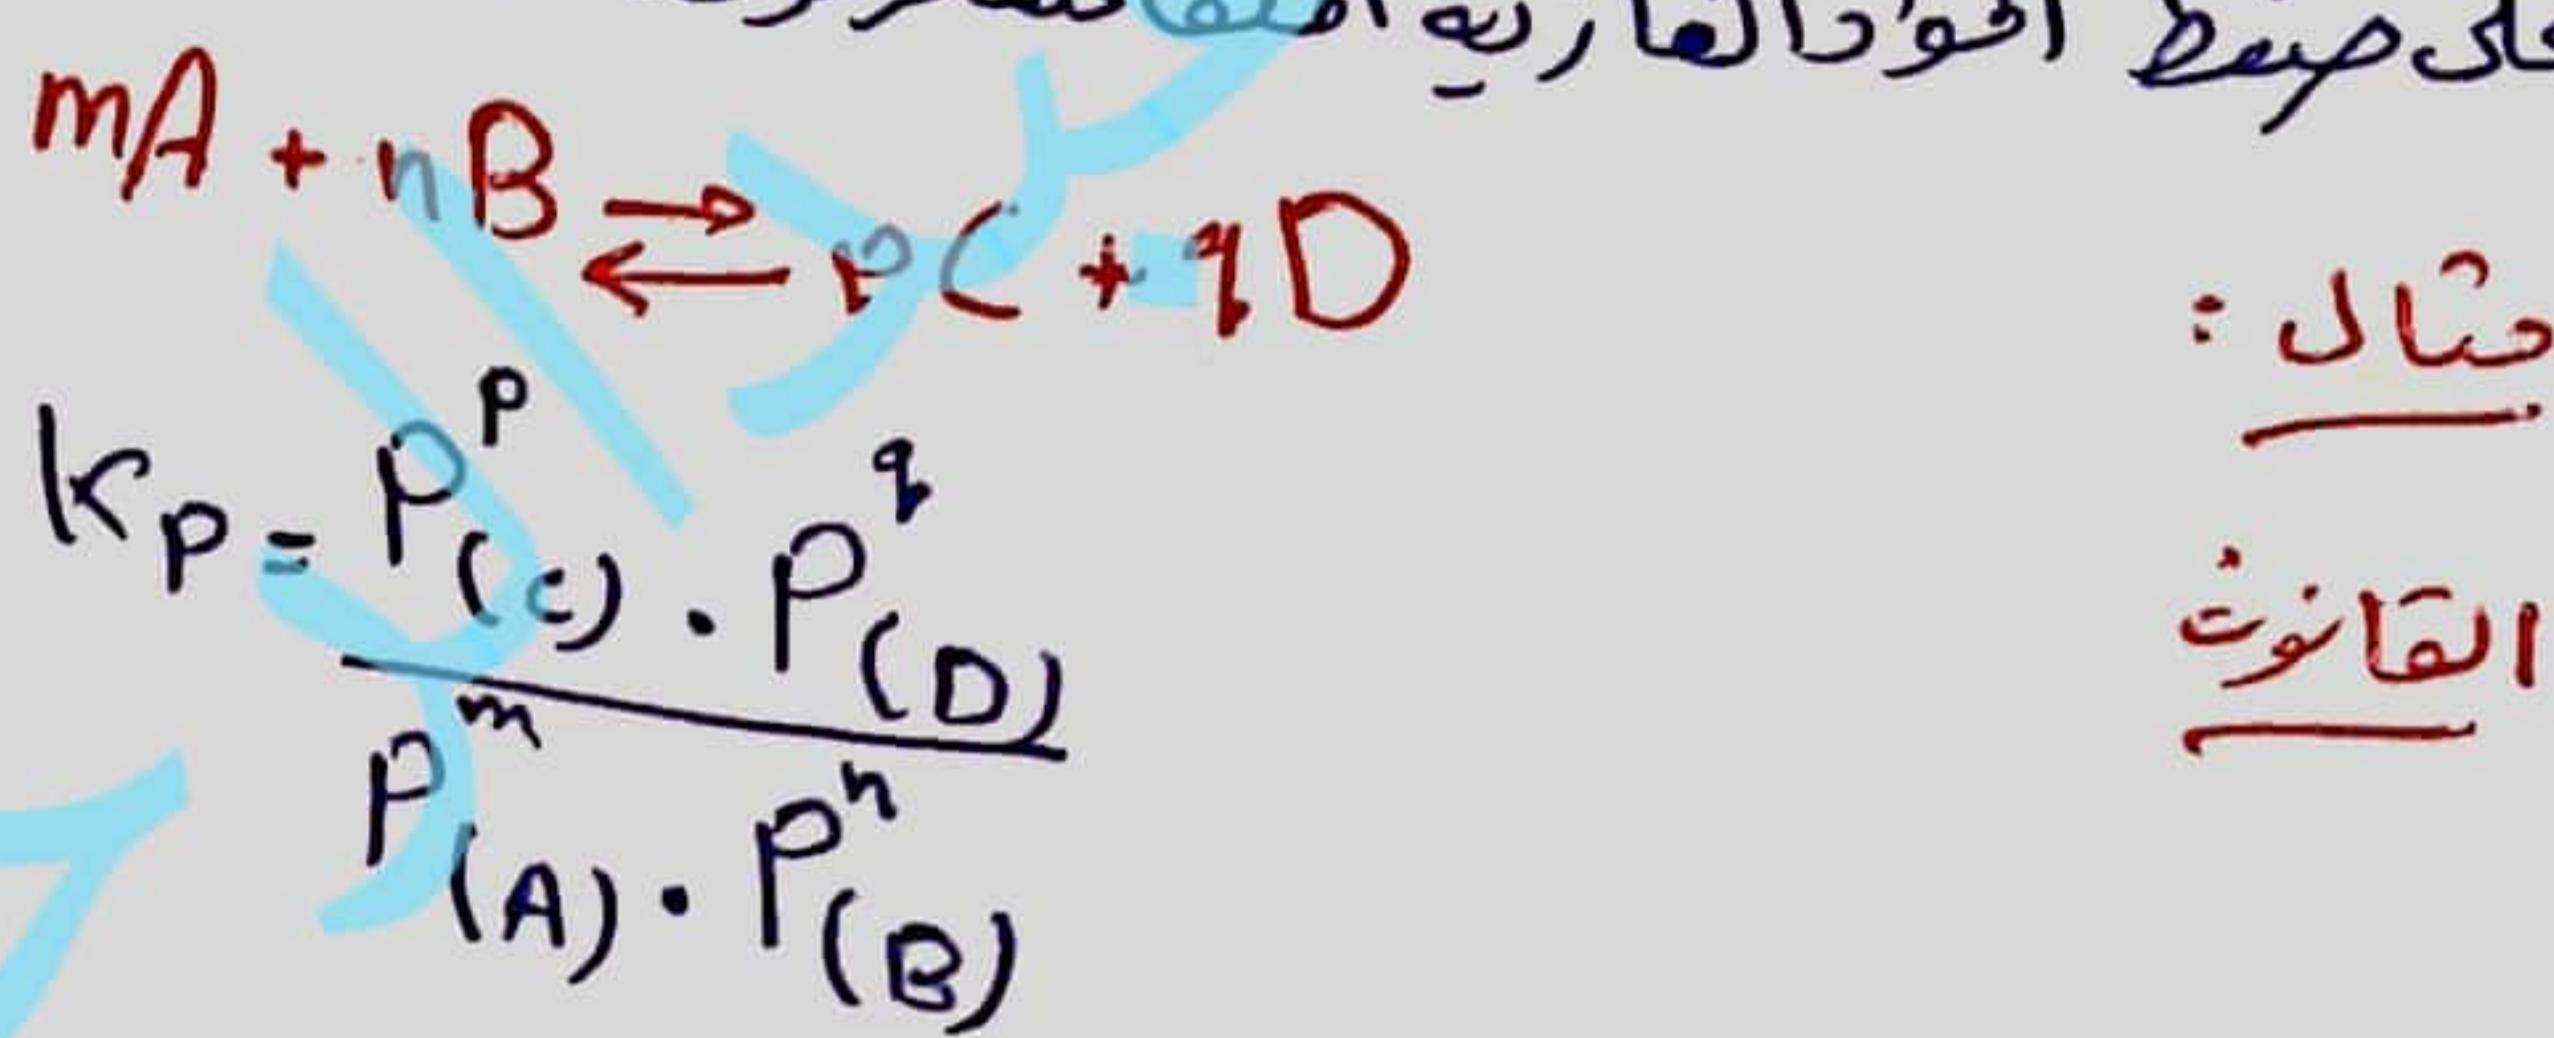 على ضغط المواد الغازية
مثال :
mA + nB ⇄ pC + qD
القانون
Kp = P^p(C) . P^q(D)
P^m(A) . P^n(B)